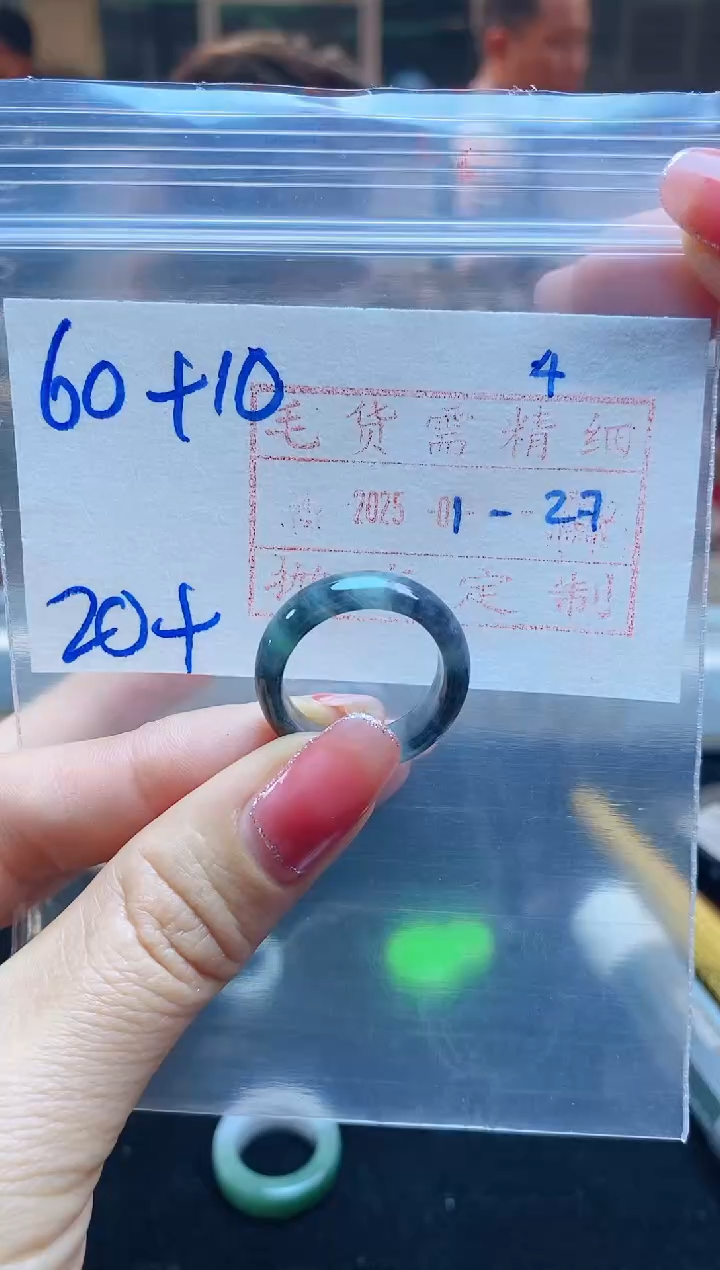 60+10
4
毛货需精细
2025 01-27
定制
20+